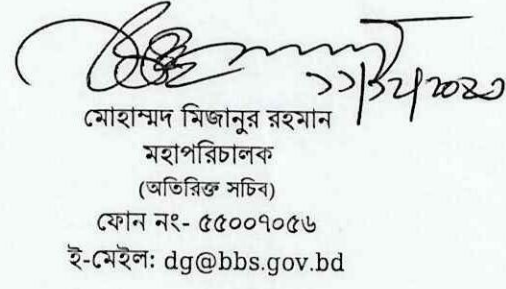 ১১/১২/২০২৩
মোহাম্মদ মিজানুর রহমান
মহাপরিচালক
(অতিরিক্ত সচিব)
ফোন নং- ৫৫০০৭০৫৬
ই-মেইল: dg@bbs.gov.bd